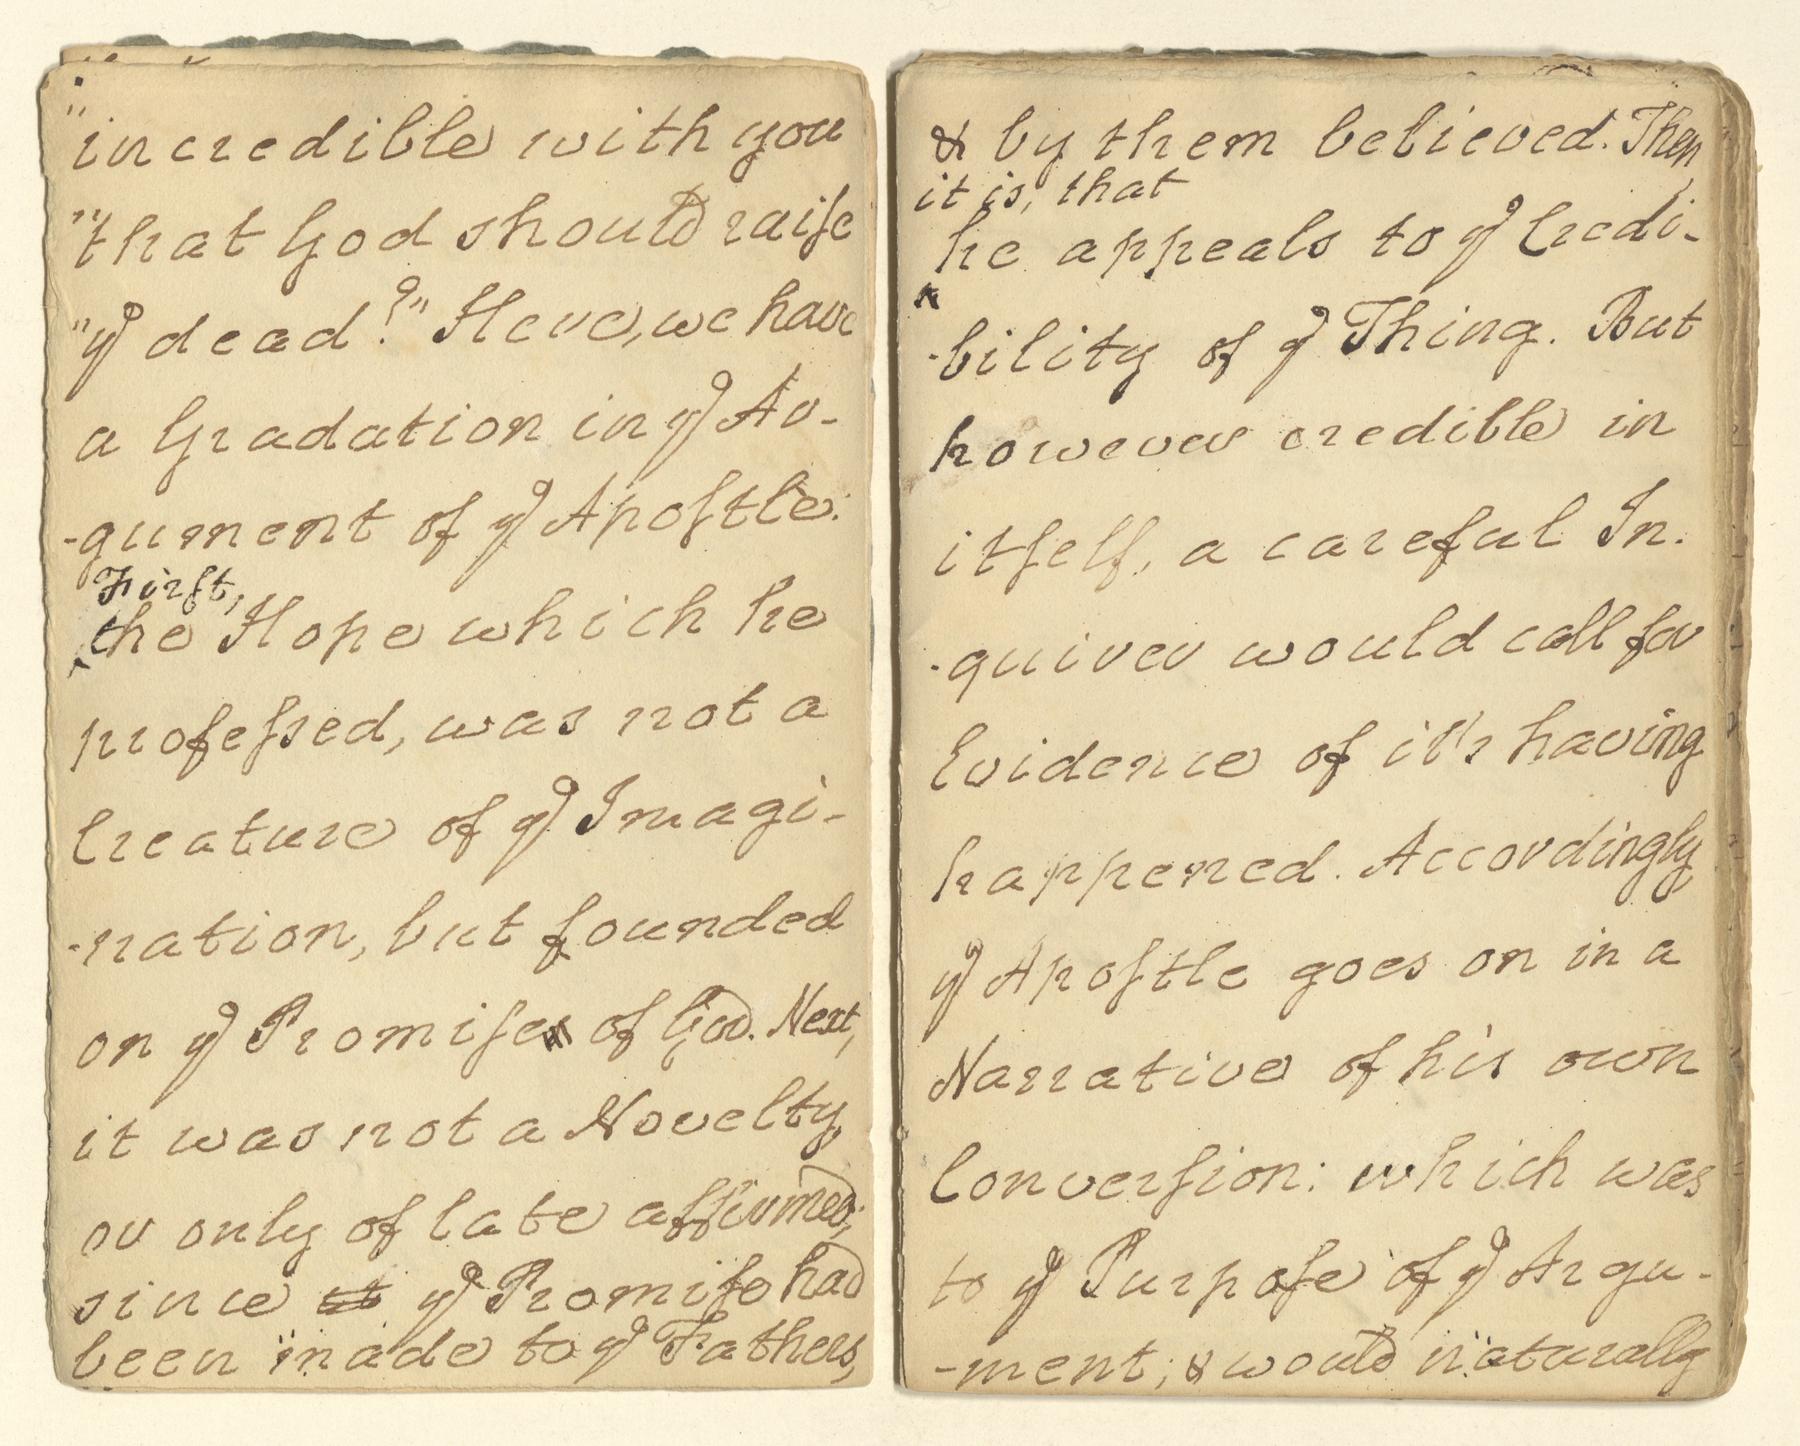 "incredible with you
"that God should raiſe
"yͤ dead?" Here, we have
a Gradation in yͤ Ar-
-gument of yͤ Apoſtle:
Firſt,
the Hope which he
profeſsed, was not a
Creature of yͤ Imagi-
-nation, but founded
on yͤ Promiſe of God. Next,
it was not a Novelty,
or only of late affirmed;
since it yͤ Promiſe had
been made to yͤ Fathers,
& by them believed. Then
it is, that
he appeals to yͤ Credi-
-bility of yͤ Thing. But
however credible in
itſelf, a careful In-
-quirer would call for
Evidence of it's having
happened. Accordingly
yͤ Apoſtle goes on in a
Narrative of his own
Converſion: which was
to yͤ Purpoſe of yͤ Argu-
-ment; & would naturally